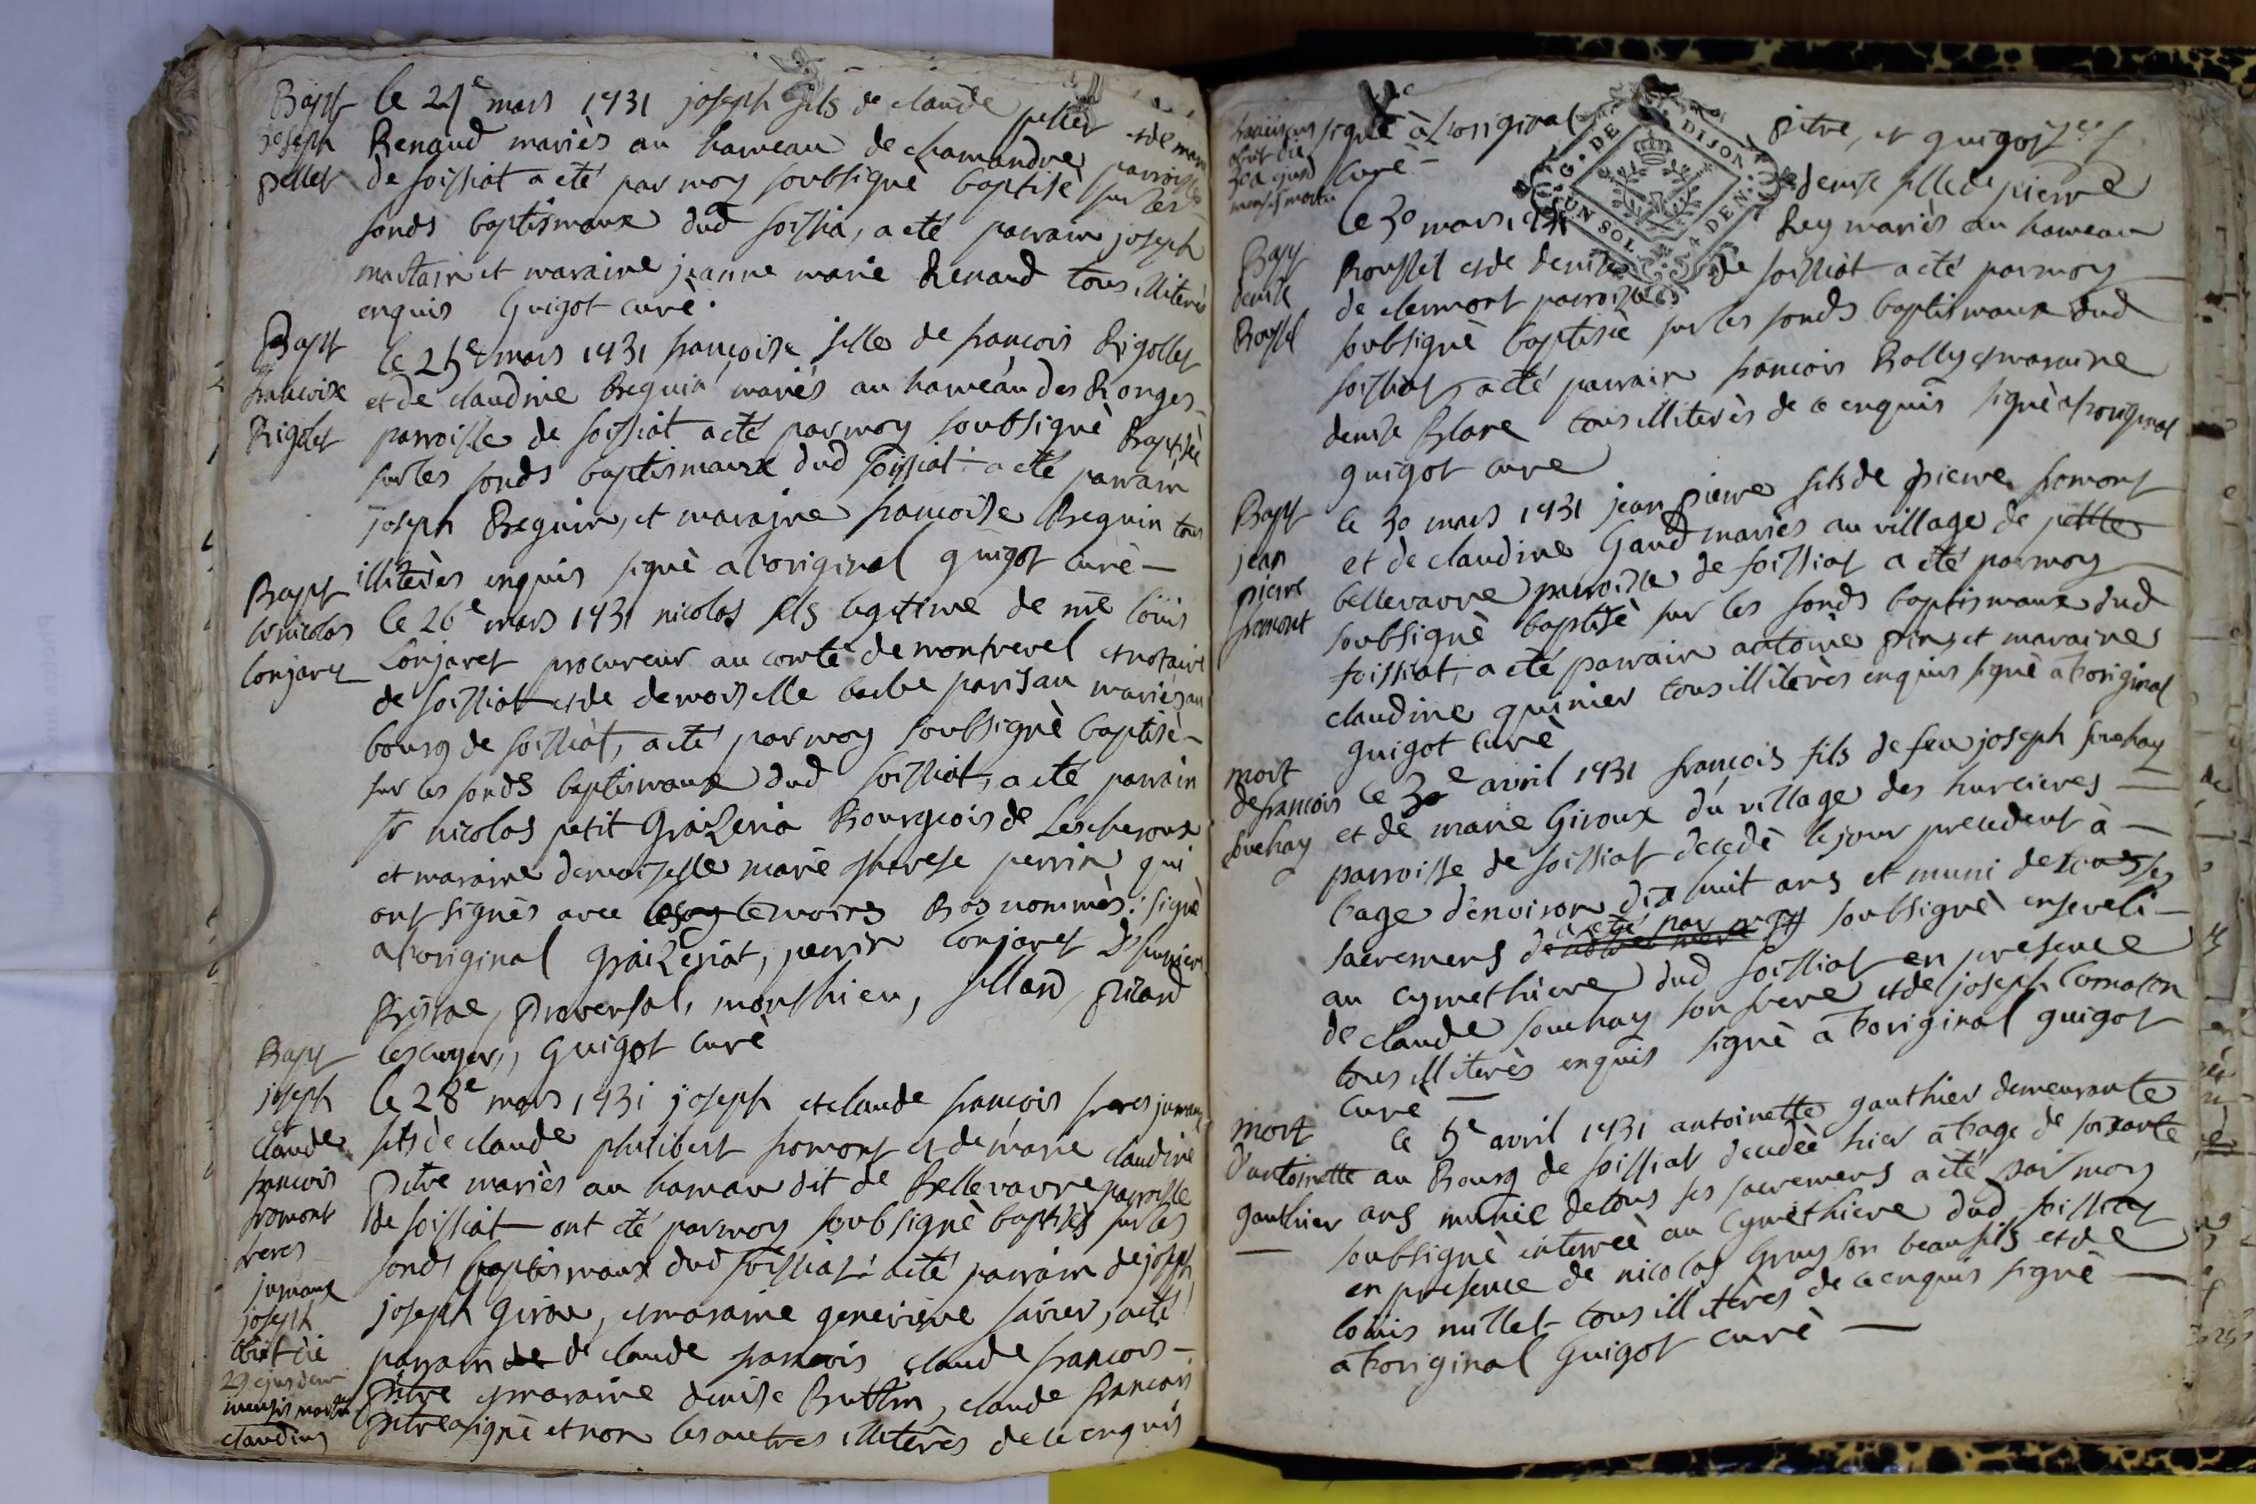 Bapt
joseph
pellet
le 21e mars 1731 joseph fils de claude pellet et de marie
Renaud mariès au hameau de chamandre parroisse
de foissiat a eté par moy soubsignè baptisè sur les
fonds baptismaux dud foissia, a eté parrain joseph
et maraine jeanne marie Renaud tous illiterès
enquis Guigot curè.
Bapt
francoise
Rigolet
le 25e mars 1731 françoise fille de francois Rigollet
et de claudine Breguin mariès au hameau des Ronges
parroisse de foissiat a eté par moy soubsignè Baptisèe
sur les fonds baptismaux dud foissiat a eté parrain
joseph Breguin, et maraine francoise Breguin tous
illiterès enquis signè a l'original guigot curè —
Bapt
nicolas
lonjaret
le 26e mars 1731 nicolas fils legitime de me loüis
Lonjaret procureur au comté de montrevel et notaire
de foissiat et de demoiselle barbe parisau mariès au
bourg de foissiat, a eté par moy soubsignè baptisè —
sur les fonds baptismaux dud foissiat, a eté parrain
sr nicolas petit Graizeria Bourgeois de Lescheroux
et maraine demoiselle marie therese perrin qui
ont signès avec les temoins Bas nommès: signè
a l'original graizeriat, perrin lonjaret
proversal, monthieu, pitard
lescuyer, Guigot curè
Bapt
joseph
et
claude
francois
fromont
freres
jumaux
joseph
obiit die
29 ejusdem
mensis martii
claudius
le 28e mars 1731 joseph et claude francois freres jumaux
fils de claude philibert fromont et de marie claudine
pitre mariès au hamau dit de Bellevavre parroisse
de foissiat ont eté par moy soubsignè baptisès sur les
fonds baptismaux dud foissiat a eté parrain de joseph
joseph Giroux, et maraine genevieve favier, a eté
parrain de de claude francois claude francois —
pitre et maraine denise Buttin, claude francois
pitre a signè et non les autres illiterès de ce enquis
franciscus
obiit die
30a ejusd
mensis martii
signè à L'original pitre, et guigot
curè —
G. DE DIJON
UN SOL 4 DEN.
Bapt
denise
Roussel
le 30 mars 1731 denise fille de pierre
Roussel et de denise Rey mariès au hameau
de clermont parroisse de foissiat a eté par moy —
soubsignè baptisèe sur les fonds baptismaux dud
foissiat, a eté parrain francois Rolly et maraine
denise Blanc tous illiterès de ce enquis signè a l'original
guigot curè
Bapt
jean
pierre
fromont
le 30 mars 1731 jean pierre fils de pierre fromont
et de claudine Gaud mariès au village de petite
bellevavre parroisse de foissiat a eté par moy —
soubsignè baptisè sur les fonds baptismaux dud
foissiat, a eté parrain antoine et maraine
claudine quinier tous illiterès enquis signè a l'original
guigot curè
mort
de francois
souchay
le 3e avril 1731 françois fils de feu joseph souchay
et de marie Giroux du village des hurcieres —
parroisse de foissiat decedè le jour precedent à —
l'age d'environ dix huit ans et muni de tous ses
sacremens a eté par moy soubsignè enseveli —
au cymethiere dud foissiat en presence
de claude souchay son frere et de joseph Comaton
tous illiterès enquis signè a l'original guigot
curè —
mort
d'antoinette
gauthier
le 5e avril 1731 antoinette gauthier demeurante
au Bourg de foissiat decedèe hier a l'age de soixante
ans munie de tous ses sacremens a eté par moy
soubsignè enterrèe au Cymethiere dud foissiat
en presence de nicolas Gruy son beau fils et de
loüis millet tous illiterès de ce enquis signè —
a l'original Guigot curè —